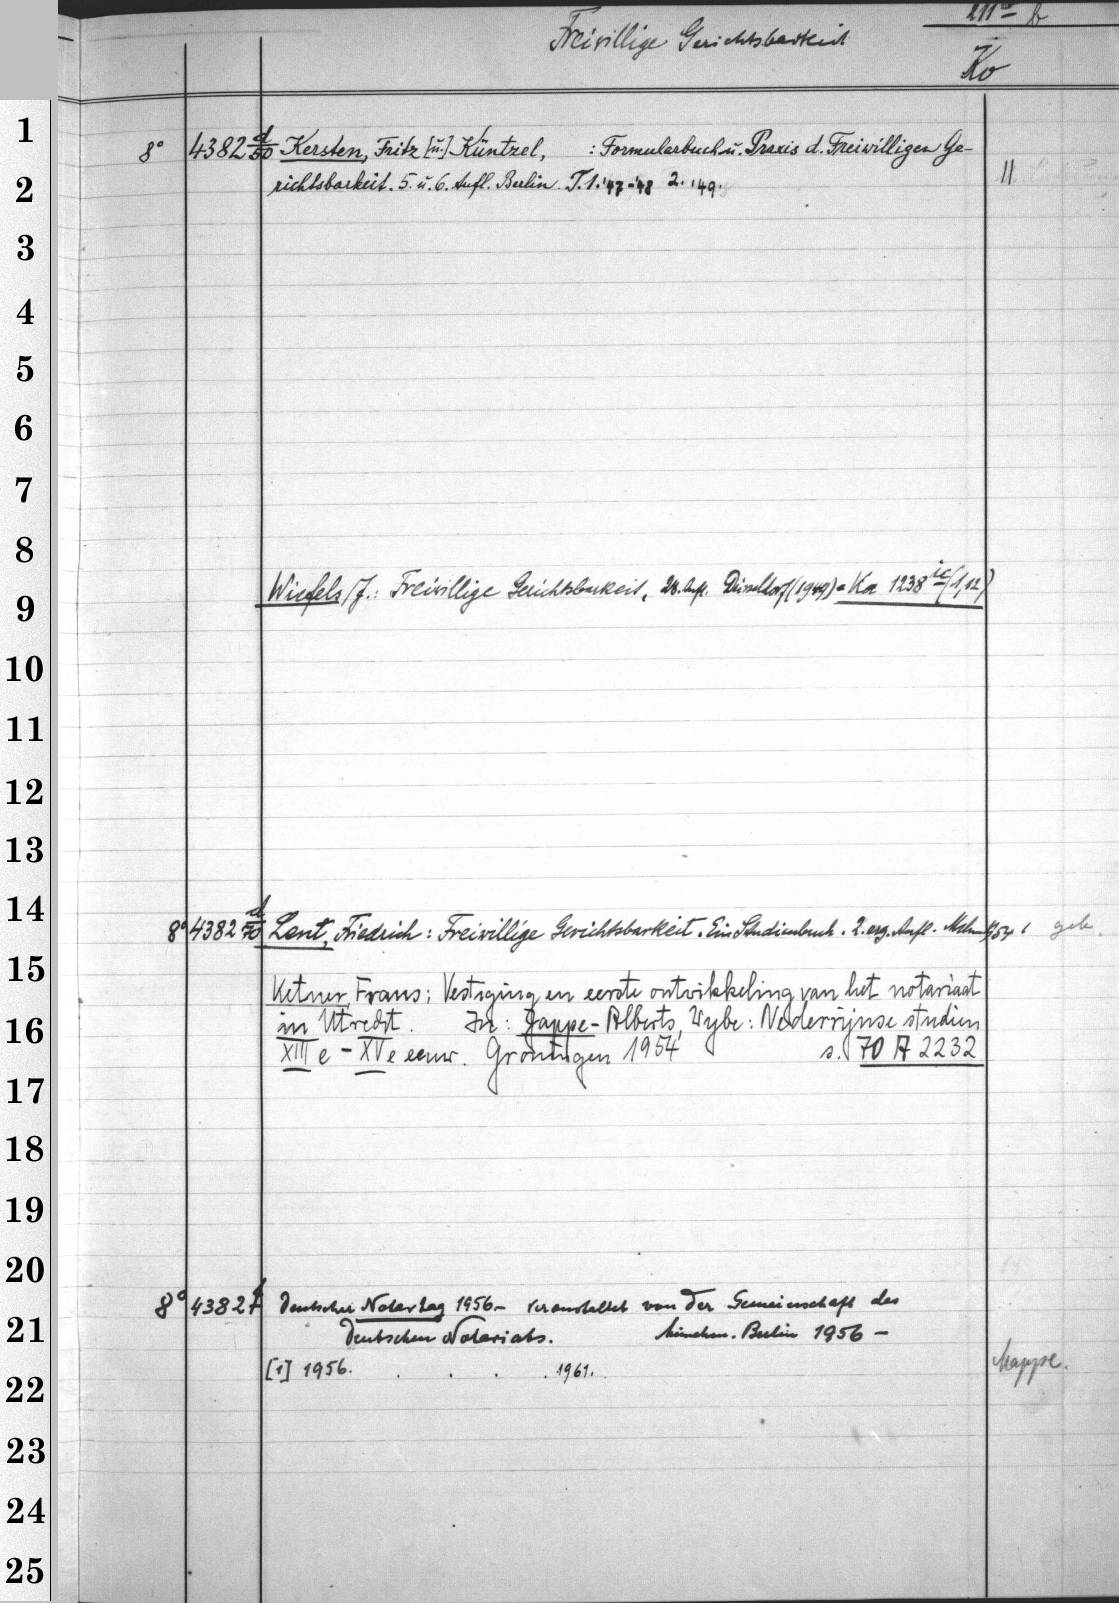 211a b
Freiwillige Gerichtsbarkeit
Ko
8° 4382 d/50 Kersten, Fritz [u.] Küntzel, : Formularbuch u. Praxis d. Freiwilligen Ge-
richtsbarkeit. 5. u. 6. Aufl. Berlin T.1. '47-'48 2. '49. II
Wiefels, J.: Freiwillige Gerichtsbarkeit, Aufl. Düsseldorf (1949) = Ko 1238 ic (1,12)
8° 4382 d/70 Lent, Friedrich: Freiwillige Gerichtsbarkeit. Ein Studienbuch. 2. erg. Aufl. Mchn 1954 geb.
Ketner, Frans: Vestiging en eerste ontwikkeling van het notariaat
in Utrecht. In: Jappe-Alberts, Wybe: Nederrijnse studien
XIIIe - XVe eeuw. Groningen 1954 s. 70 A 2232
8° 4382 f Deutscher Notartag 1956- veranstaltet von der Gemeinschaft des
Deutschen Notariats. München. Berlin 1956 -
[1] 1956. . . . . 1961. Mappe.
1
2
3
4
5
6
7
8
9
10
11
12
13
14
15
16
17
18
19
20
21
22
23
24
25